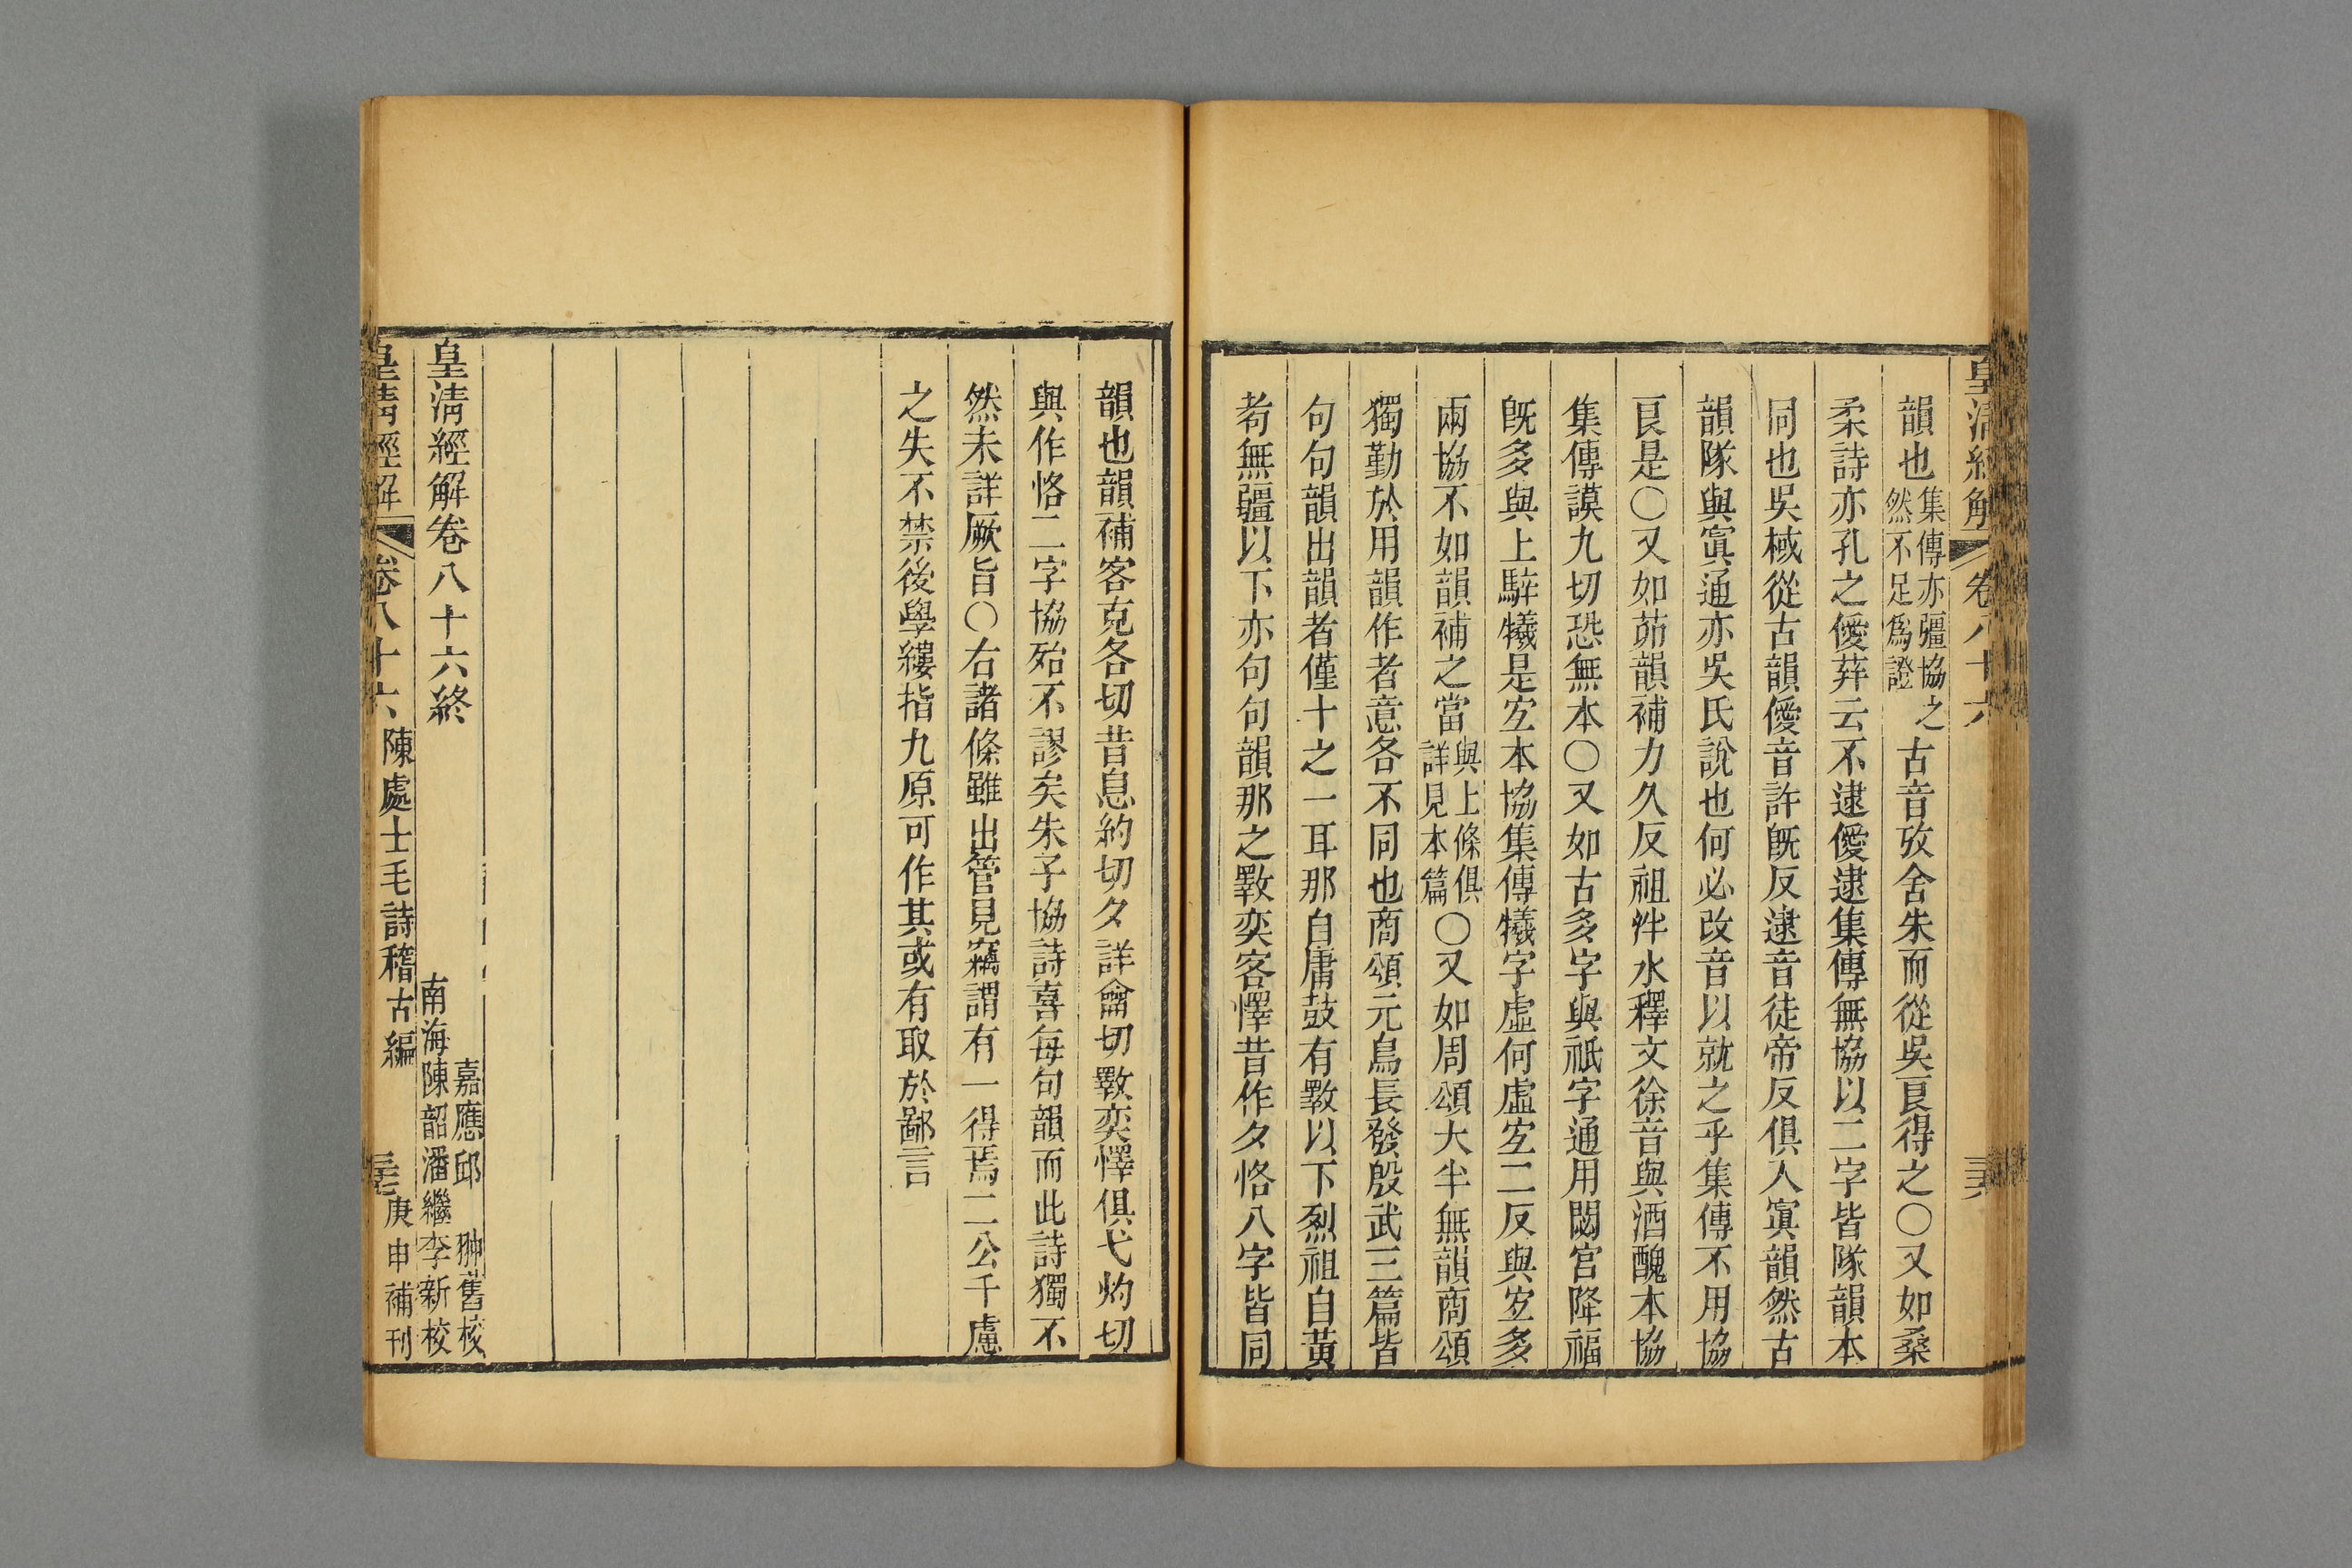 皇清經解 卷八十六
韻也集傳亦疆協之然不足爲證古音攷舍朱而從吳良得之○又如桑
柔詩亦孔之僾荓云不逮僾逮集傳無協以二字皆隊韻本
同也吳棫從古韻僾音許旣反逮音徒帝反俱入寘韻然古
韻隊與寘通亦吳氏說也何必改音以就之乎集傳不用協
良是○又如茆韻補力久反祖泮水釋文徐音與酒醜本協
集傳謨九切恐無本○又如古多字與祇字通用閟宮降福
旣多與上騂犧是宜本協集傳犧字虛何虛宜二反與宜多
兩協不如韻補之當與上條俱詳見本篇○又如周頌大半無韻商頌
獨勤於用韻作者意各不同也商頌元鳥長發殷武三篇皆
句句韻出韻者僅十之一耳那自庸鼓有斁以下烈祖自黃
耇無疆以下亦句句韻那之斁奕客懌昔作夕恪八字皆同
韻也韻補客克各切昔息約切夕詳龠切斁奕懌俱弋灼切
與作恪二字協殆不謬矣朱子協詩喜每句韻而此詩獨不
然未詳厥旨○右諸條雖出管見竊謂有一得焉二公千慮
之失不禁後學縷指九原可作其或有取於鄙言
皇清經解卷八十六終
嘉應邱翀舊校
南海陳韶潘繼李新校
皇清經解 卷八十六 陳處士毛詩稽古編 庚申補刊